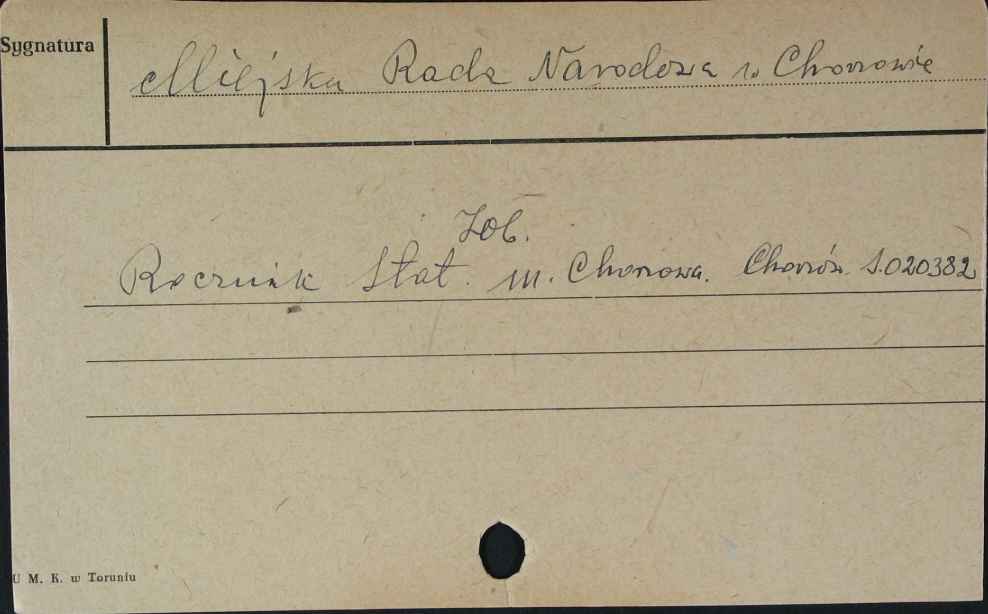 Sygnatura
Miejska Rada Narodowa w Chorzowie
Zob.
Rocznik Stat. m. Chorzowa. Chorzów. S.020382
U M. K. w Toruniu